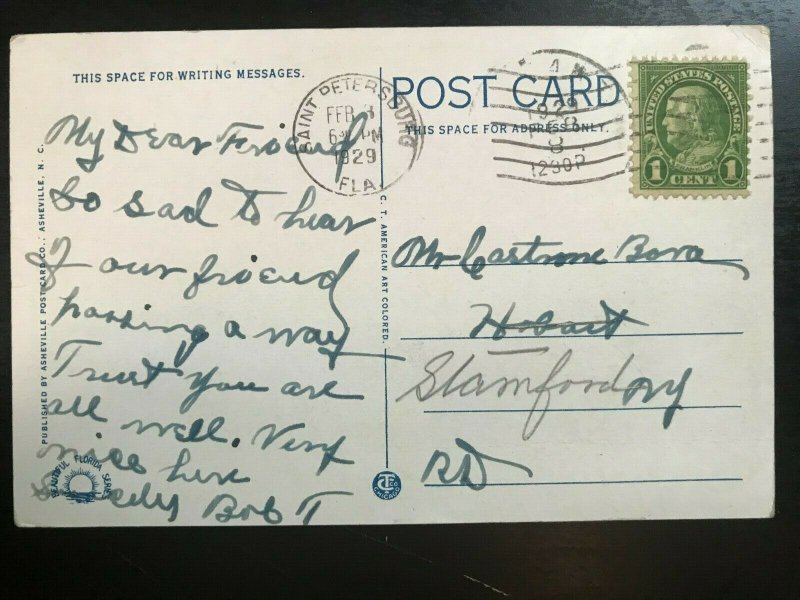 THIS SPACE FOR WRITING MESSAGES.
My Dear Friend
So sad to hear
of our friend
passing a way
Trust you are
all well. Very
nice here
Bob T
PUBLISHED BY ASHEVILLE POST CARD CO., ASHEVILLE, N. C.
BEAUTIFUL FLORIDA SERIES
SAINT PETERSBURG
FEB 3
PM
1929
FLA.
C. T. AMERICAN ART COLORED.
CT CO
CHICAGO
POST CARD
THIS SPACE FOR ADDRESS ONLY.
1929
FEB
8
1230P
UNITED STATES POSTAGE
FRANKLIN
1 CENT 1
Mr Castrone Bova
Hobart
Stamford NY
RD